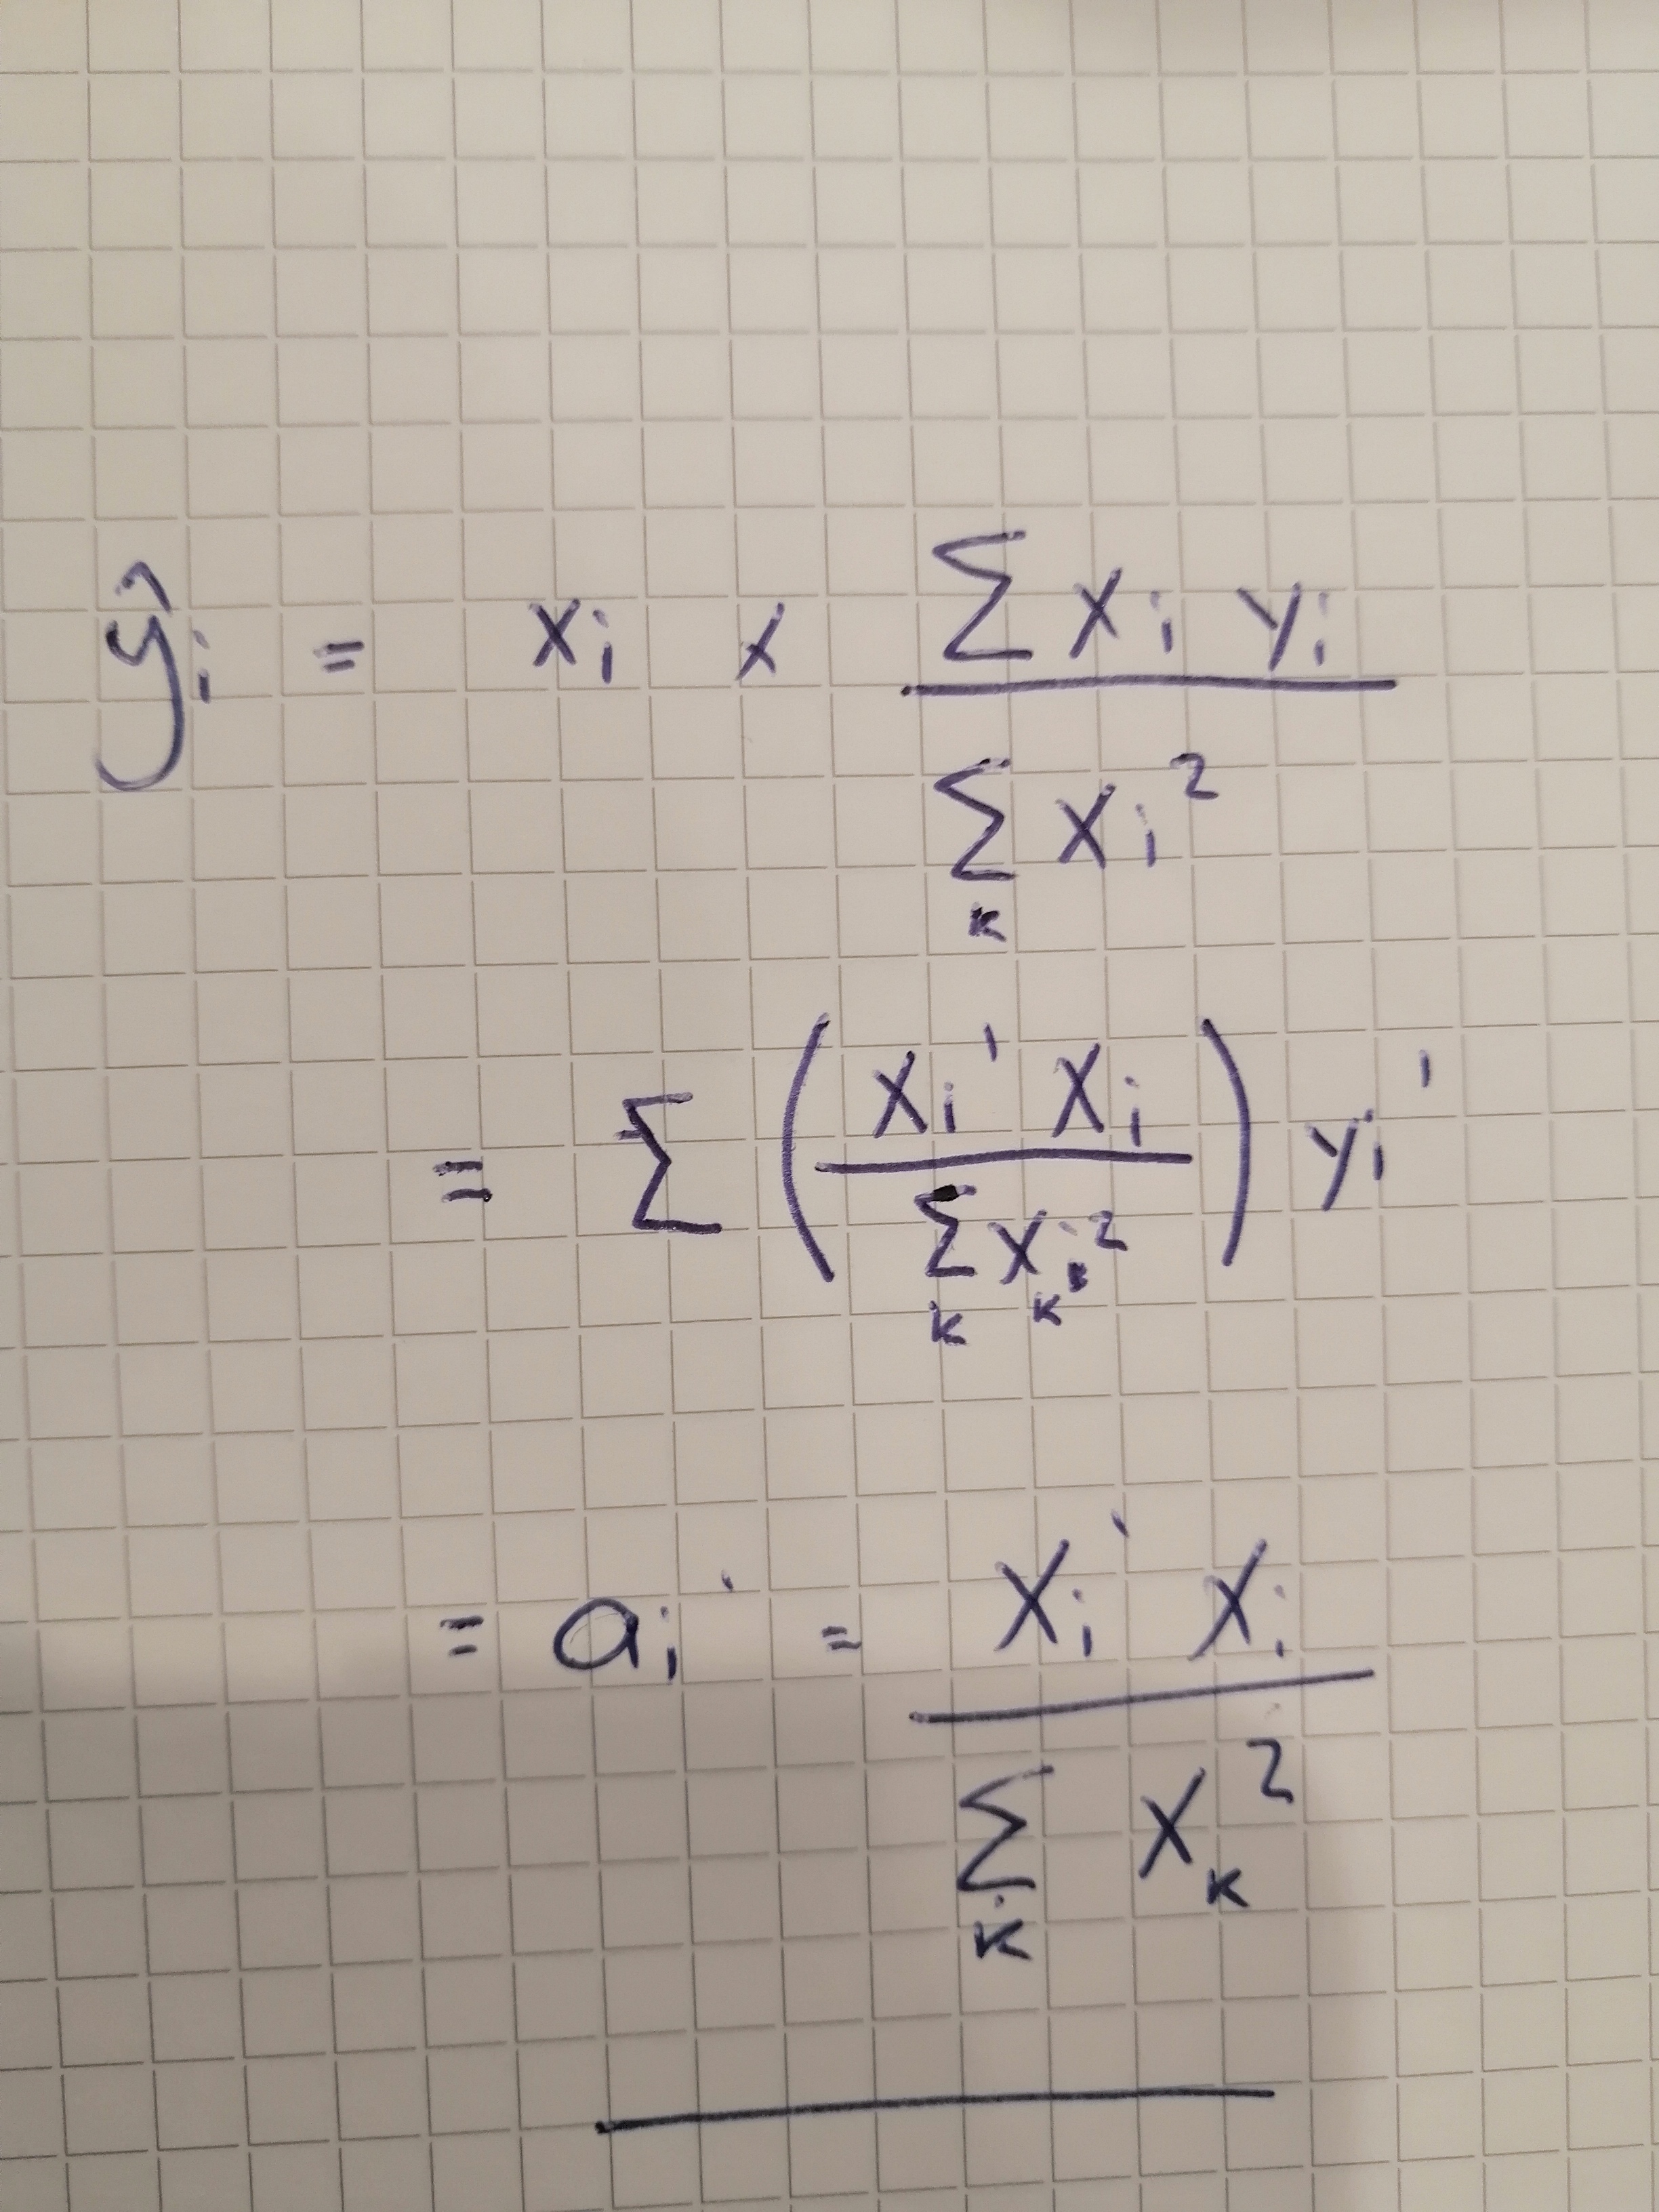 ŷᵢ = xᵢ × Σ xᵢ yᵢ / Σₖ xᵢ²
= Σ ( xᵢ' xᵢ / Σₖ xₖ² ) yᵢ'
= aᵢ' = xᵢ' xᵢ / Σₖ xₖ²